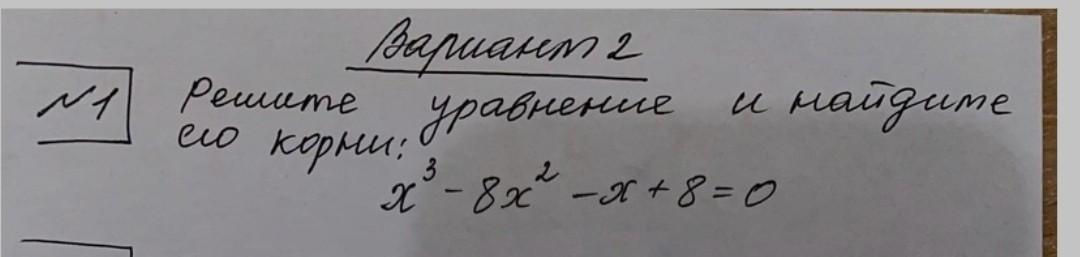 Вариант 2
№1 Решите уравнение и найдите
его корни:
x³ - 8x² - x + 8 = 0